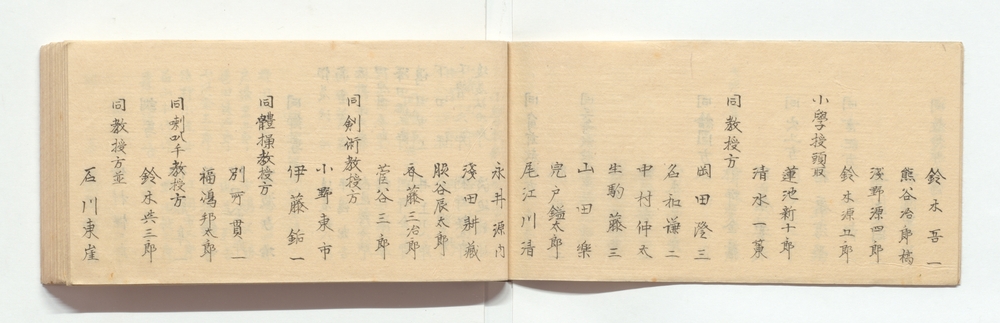 鈴木吾一
熊谷治郎橘
淺野源四郎
鈴木源五郎
小學授頭取
蓮池新十郎
清水一䕃
同教授方
岡田澄三
名和謙二
中村仲太
生駒藤三
山田樂
宍戸鎰太郎
尾江川清
永井源内
淺田耕藏
服谷辰太郎
斎藤三治郎
菅谷三郎
同劍術教授方
小野東市
伊藤銛一
同體操教授方
別所貫一
福鴻邦太郎
同喇叭手教授方
鈴木兵三郎
同教授方並
石川東崖